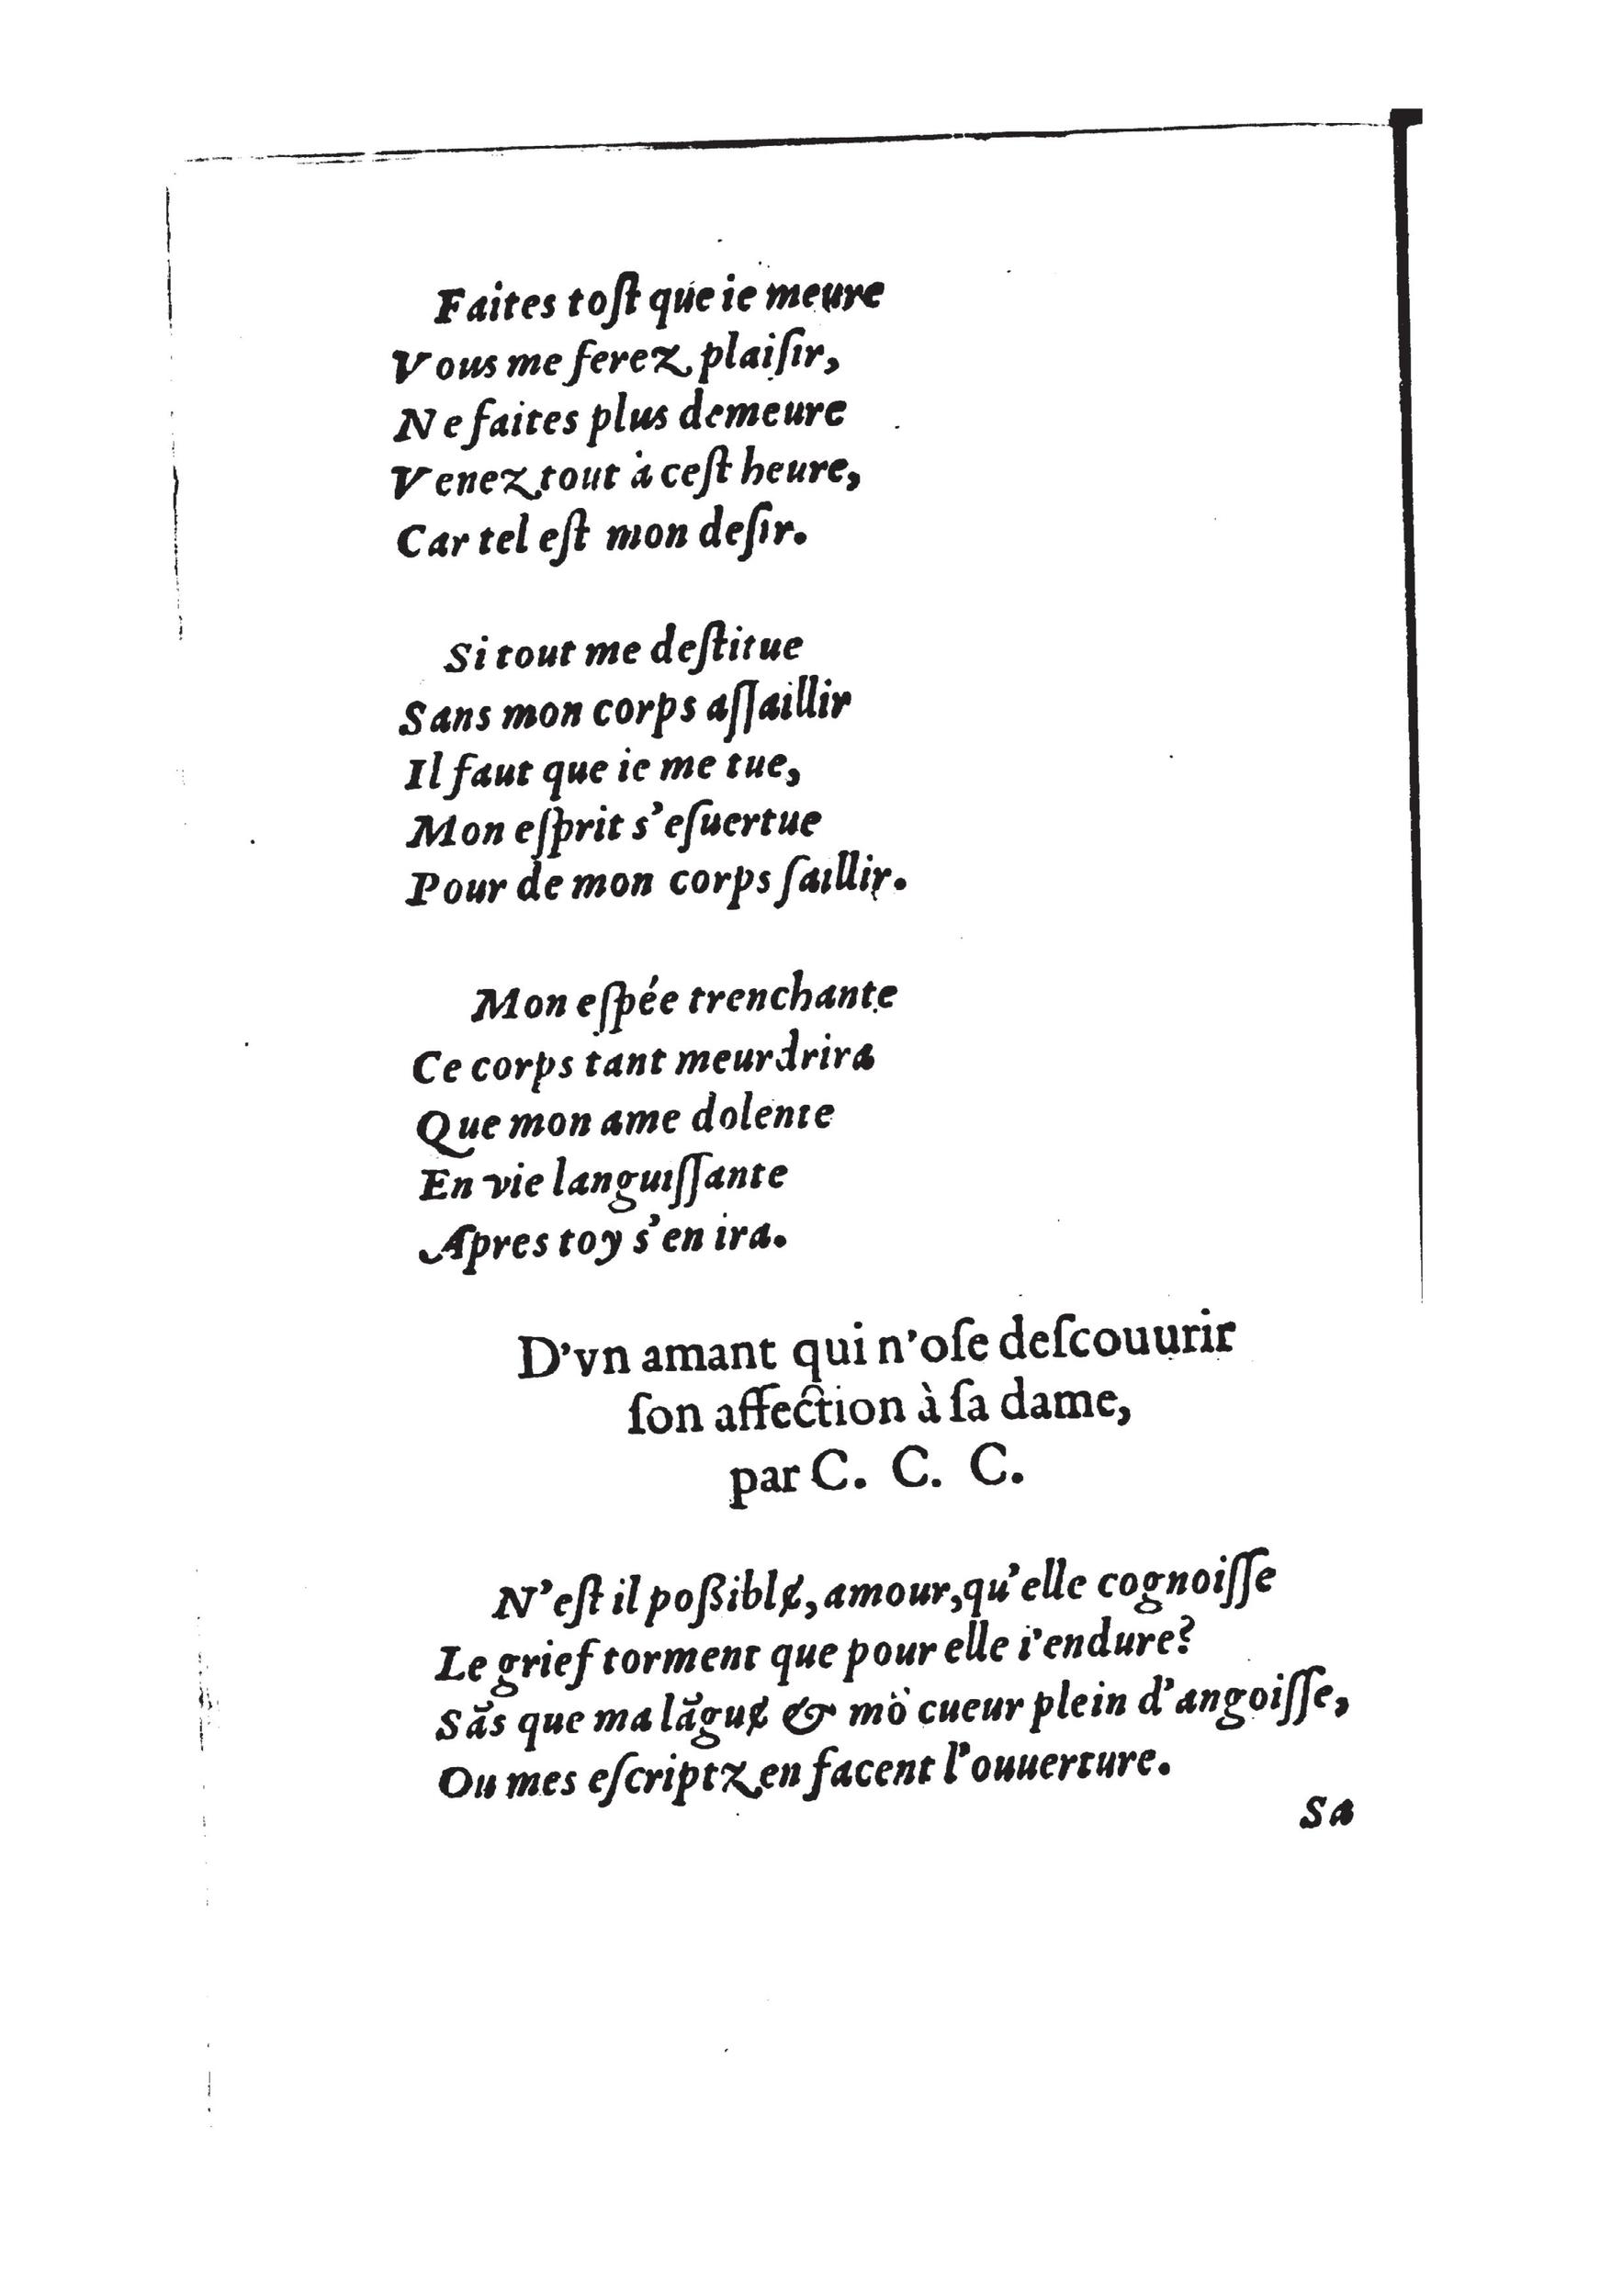 Faites toſt que ie meure
Vous me ferez plaiſir,
Ne faites plus demeure
Venez tout à ceſt heure,
Car tel eſt mon deſir.
Si tout me deſtitue
Sans mon corps aſſaillir
Il faut que ie me tue,
Mon eſprit s'eſuertue
Pour de mon corps ſaillir.
Mon eſpée trenchante
Ce corps tant meurdrira
Que mon ame dolente
En vie languiſſante
Apres toy s'en ira.
D'vn amant qui n'oſe deſcouurir
ſon affection à ſa dame,
par C. C. C.
N'eſt il poßiblɇ, amour, qu'elle cognoiſſe
Le grief torment que pour elle i'endure?
Sãs que ma lãguɇ & mõ cueur plein d'angoiſſe,
Ou mes eſcriptz en facent l'ouuerture.
Sa